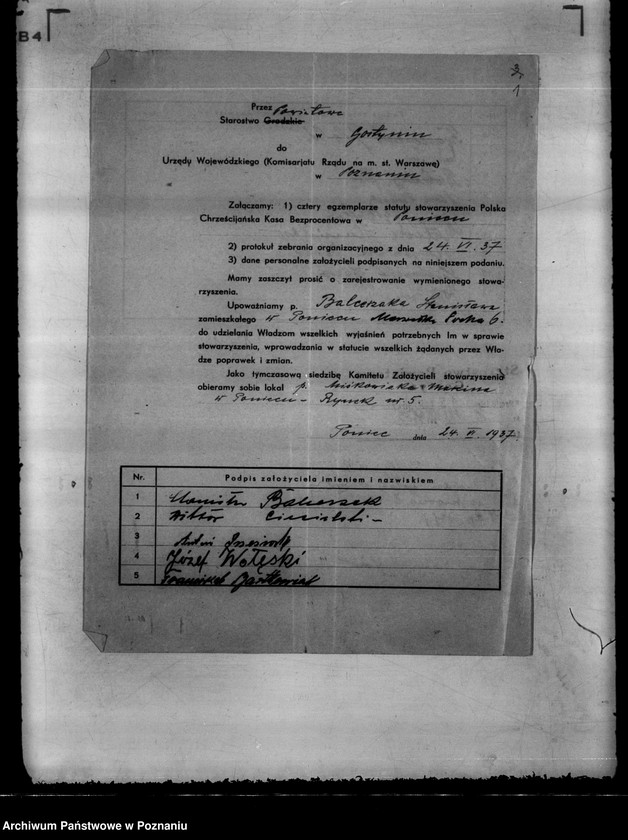 B4
3.
1
Przez Powiatowe
Starostwo Grodzkie
w Gostyniu
do
Urzędu Wojewódzkiego (Komisarjatu Rządu na m. st. Warszawę)
w Poznaniu
Załączamy: 1) cztery egzemplarze statutu stowarzyszenia Polska
Chrześcijańska Kasa Bezprocentowa w Poniecu
2) protokuł zebrania organizacyjnego z dnia 24. VI. 37
3) dane personalne założycieli podpisanych na niniejszem podaniu.
Mamy zaszczyt prosić o zarejestrowanie wymienionego stowa-
rzyszenia.
Upoważniamy p. Balcerzaka Stanisława
zamieszkałego w Poniecu 6.
do udzielania Władzom wszelkich wyjaśnień potrzebnych Im w sprawie
stowarzyszenia, wprowadzania w statucie wszelkich żądanych przez Wła-
dze poprawek i zmian.
Jako tymczasową siedzibę Komitetu Założycieli stowarzyszenia
obieramy sobie lokal p.
w Poniecu - Rynek nr. 5.
Poniec dnia 24. VI. 1937.
Nr. Podpis założyciela imieniem i nazwiskiem
1 Stanisław Balcerzak
2 Wiktor
3
4 Józef Wołęski
5 Franciszek
Archiwum Państwowe w Poznaniu